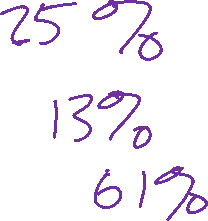 25%
13%
61%